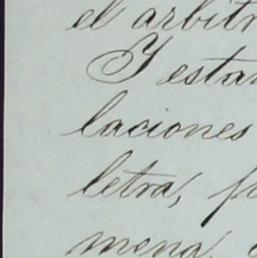 el arbitr
Y esta
laciones
letra, p
mena